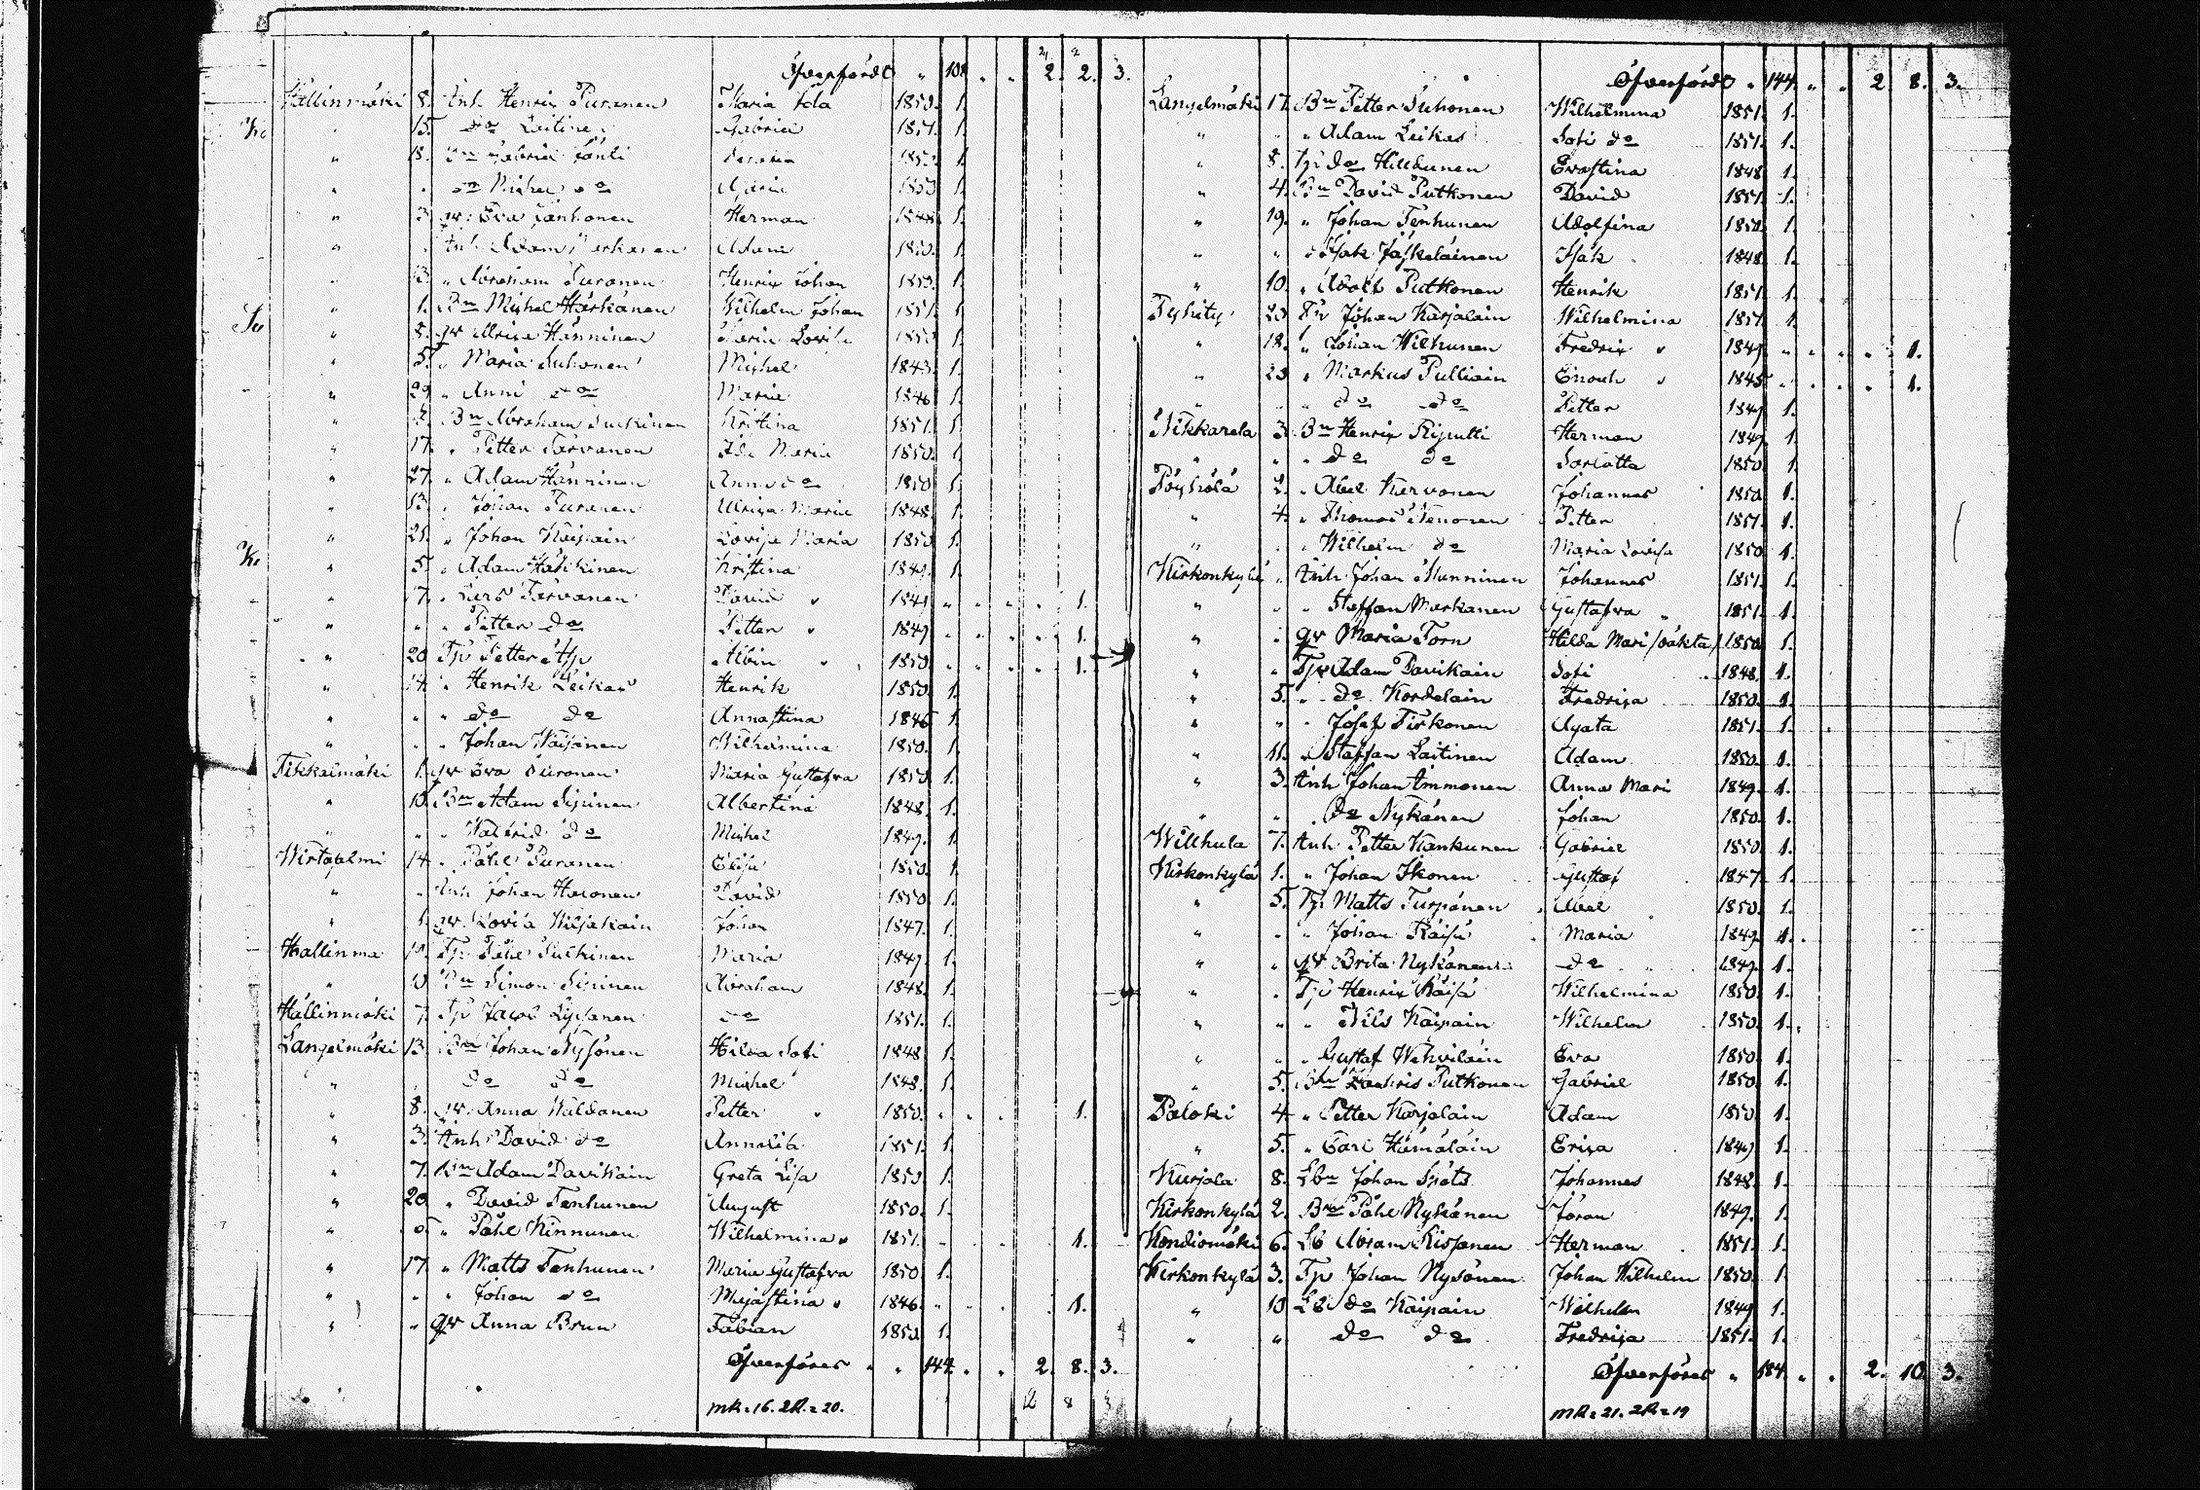 Öfverfördt " 108 " " 2. 2. 3.
Hällinmäki 8. Inh. Henrix Puranen Maria Ida 1850. 1.
Kc " 15. do Laitinen Gabriel 1851. 1.
" 18. Bn Gabriel 1850. 1.
" " do Mickel do Maria 1850 1.
" 3. qv. Eva Janhonen Herman 1848. 1.
" " Inh. Adam Adam 1850. 1.
" 13. " Abraham Puranen Henrix Johan 1850. 1.
Su " 1. Bn Michel Härkänen Wilhelm Johan 1851. 1.
" 8. qv Ulrixa Hänninen Maria Lovisa 1850 1.
" 5. " Maria Suhonen Michel 1843. 1.
" 29. " Anni do Maria 1846 1.
" Bn Abraham Kristina 1851. 1.
" 17. " Petter Tarvanen Ida Maria 1850. 1.
" 27. " Adam Hänninen Anna do 1850 1.
" 13. " Johan Puranen Ulrixa Maria 1848. 1.
" 21. " Johan Kaipain Lovisa Maria 1850 1.
Kc " 5. " Adam Kristina 1849. 1.
" 7. " Lars Tarvanen David " 1841 " " " " 1.
" " " Petter do Petter " 1849 " " " " 1.
" 20 Tjv Petter Albin " 1850. " " " " 1.
" 14. " Henrik Leikas Henrik 1850. 1.
" " " do do Annastina 1846 1.
" " " Johan Väisänen Wilhelmina 1850. 1.
Pikkaimäki 1. qv Eva Puronen Maria Gustafva 1850. 1.
" 10. Bn Adam Sipinen Albertina 1848. 1.
" " " Walfrid do Michel 1849. 1.
Wirtasalmi 14. " Påhl Puranen Elisa 1850. 1.
" " Inh. Johan Halonen David 1850 1.
" 1. qv. Lovisa Wiljakain Johan 1847. 1.
Hallinma 10. Tjv Påhl Putkinen Maria 1849. 1.
" 10 Bn Simon Sipinen Abraham 1848. 1.
Hällinmäki 7. Tjv Jacob Lyytinen do 1851. 1.
Längelmäki 13. Bn Johan Nysönen Hilda Sofi 1848 1.
" " do do Michel 1848. 1.
" 8. qv. Anna Waldanen Petter " 1850. " " " 1.
" 3. Inh. David do Annalisa 1851. 1.
" 7. Bn Adam Pavikain Greta Lisa 1850. 1.
" 20. " David Tenhunen August 1850. 1.
" 5. " Påhl Kinnunen Wilhelmina " 1851. " " 1.
" 17. " Matts Tenhunen Maria Gustafva 1850 1.
" " " Johan do Majastina " 1846. " " " 1.
" " qv Anna Brun Fabian 1850 1.
Öfverföres " " 144. " " 2. 8. 3.
mk. 16. 2k. = 20.
Öfverfördt " 144. " " 2. 8. 3.
Längelmäki 17. Bn Petter Suhonen Wilhelmina 1851. 1.
" " " Adam Leikas Sofi do 1851. 1.
" 8. Tjv do Hildunen Evastina 1848 1.
" 4. Bn David Putkonen David 1851. 1.
" 19. " Johan Tenhunen Adolfina 1850. 1.
" " " Isak Jäskeläinen Isak 1848 1.
" 10. " Adolf Putkonen Henrik 1851. 1.
Pyhitty 23 Bn Johan Karjalain Wilhelmina 1851. 1.
" 18. " Johan Wilhunen Fredrix " 1849. " " " " 1.
" 23 " Markus Pulliain Enoch " 1845 " " " " 1.
" " " do do Petter 1849 1.
Nikkarila 3. Bn Henrix Ripatti Herman 1849 1.
" " " do do Sarlotta 1850. 1.
Pöyhölä 2. " Abel Karvonen Johannes 1850. 1.
" 4. " Thomas Nenonen Petter 1851. 1.
" " " Wilhelm do Maria Lovisa 1850 1.
Kirkonkylä " Inh. Johan Manninen Johannes 1851. 1.
" " " Staffan Markanen Gustafva " 1851. 1.
" " qv Maria Torn Hilda Mari /oäkta/ 1850. 1.
" " Tjv Adam Pavikain Sofi 1848. 1.
" 5. " do Kordelain Fredrixa 1850. 1.
" " " Josef Pirkonen Agata 1851. 1.
" 11. " Staffan Laitinen Adam 1850. 1.
" 3. Inh Johan Immonen Anna Mari 1849. 1.
" " " do Nykänen Johan 1850. 1.
Willhula 7. Inh. Petter Kankunen Gabriel 1850. 1.
Kirkonkylä 1. " Johan Ikonen Gustaf 1847. 1.
" 5. Tjv Matts Turpänen Abel 1850. 1.
" " " Johan Räisä Maria 1849. 1.
" " qv. Brita Nykänen do 1849. 1.
" " Tjv Henrix Räisä Wilhelmina 1850. 1.
" " " Nils Kaipain Wilhelm 1850. 1.
" " " Gustaf Wehviläin Eva 1850. 1.
" 5. Bn Zachris Putkonen Gabriel 1850. 1.
Paloki 4 " Petter Karjalain Adam 1850. 1.
" 5. " Carl Hämäläin Erixa 1849. 1.
Kurjala 8. Lbn Johan Späts Johannes 1848. 1.
Kirkonkylä 2. Bn Påhl Nykänen Göran 1849. 1.
Kondiomäki 6. Lb Abram Rissanen Herman 1851. 1.
Kirkonkylä 3. Tjv Johan Nysönen Johan Wilhelm 1850. 1
" 10 Lb do Kaipain Wilhelm 1849 1.
" " do do Fredrixa 1851. 1.
Öfverföres " 184. " " 2. 10. 3.
mk = 21. 2k = 19